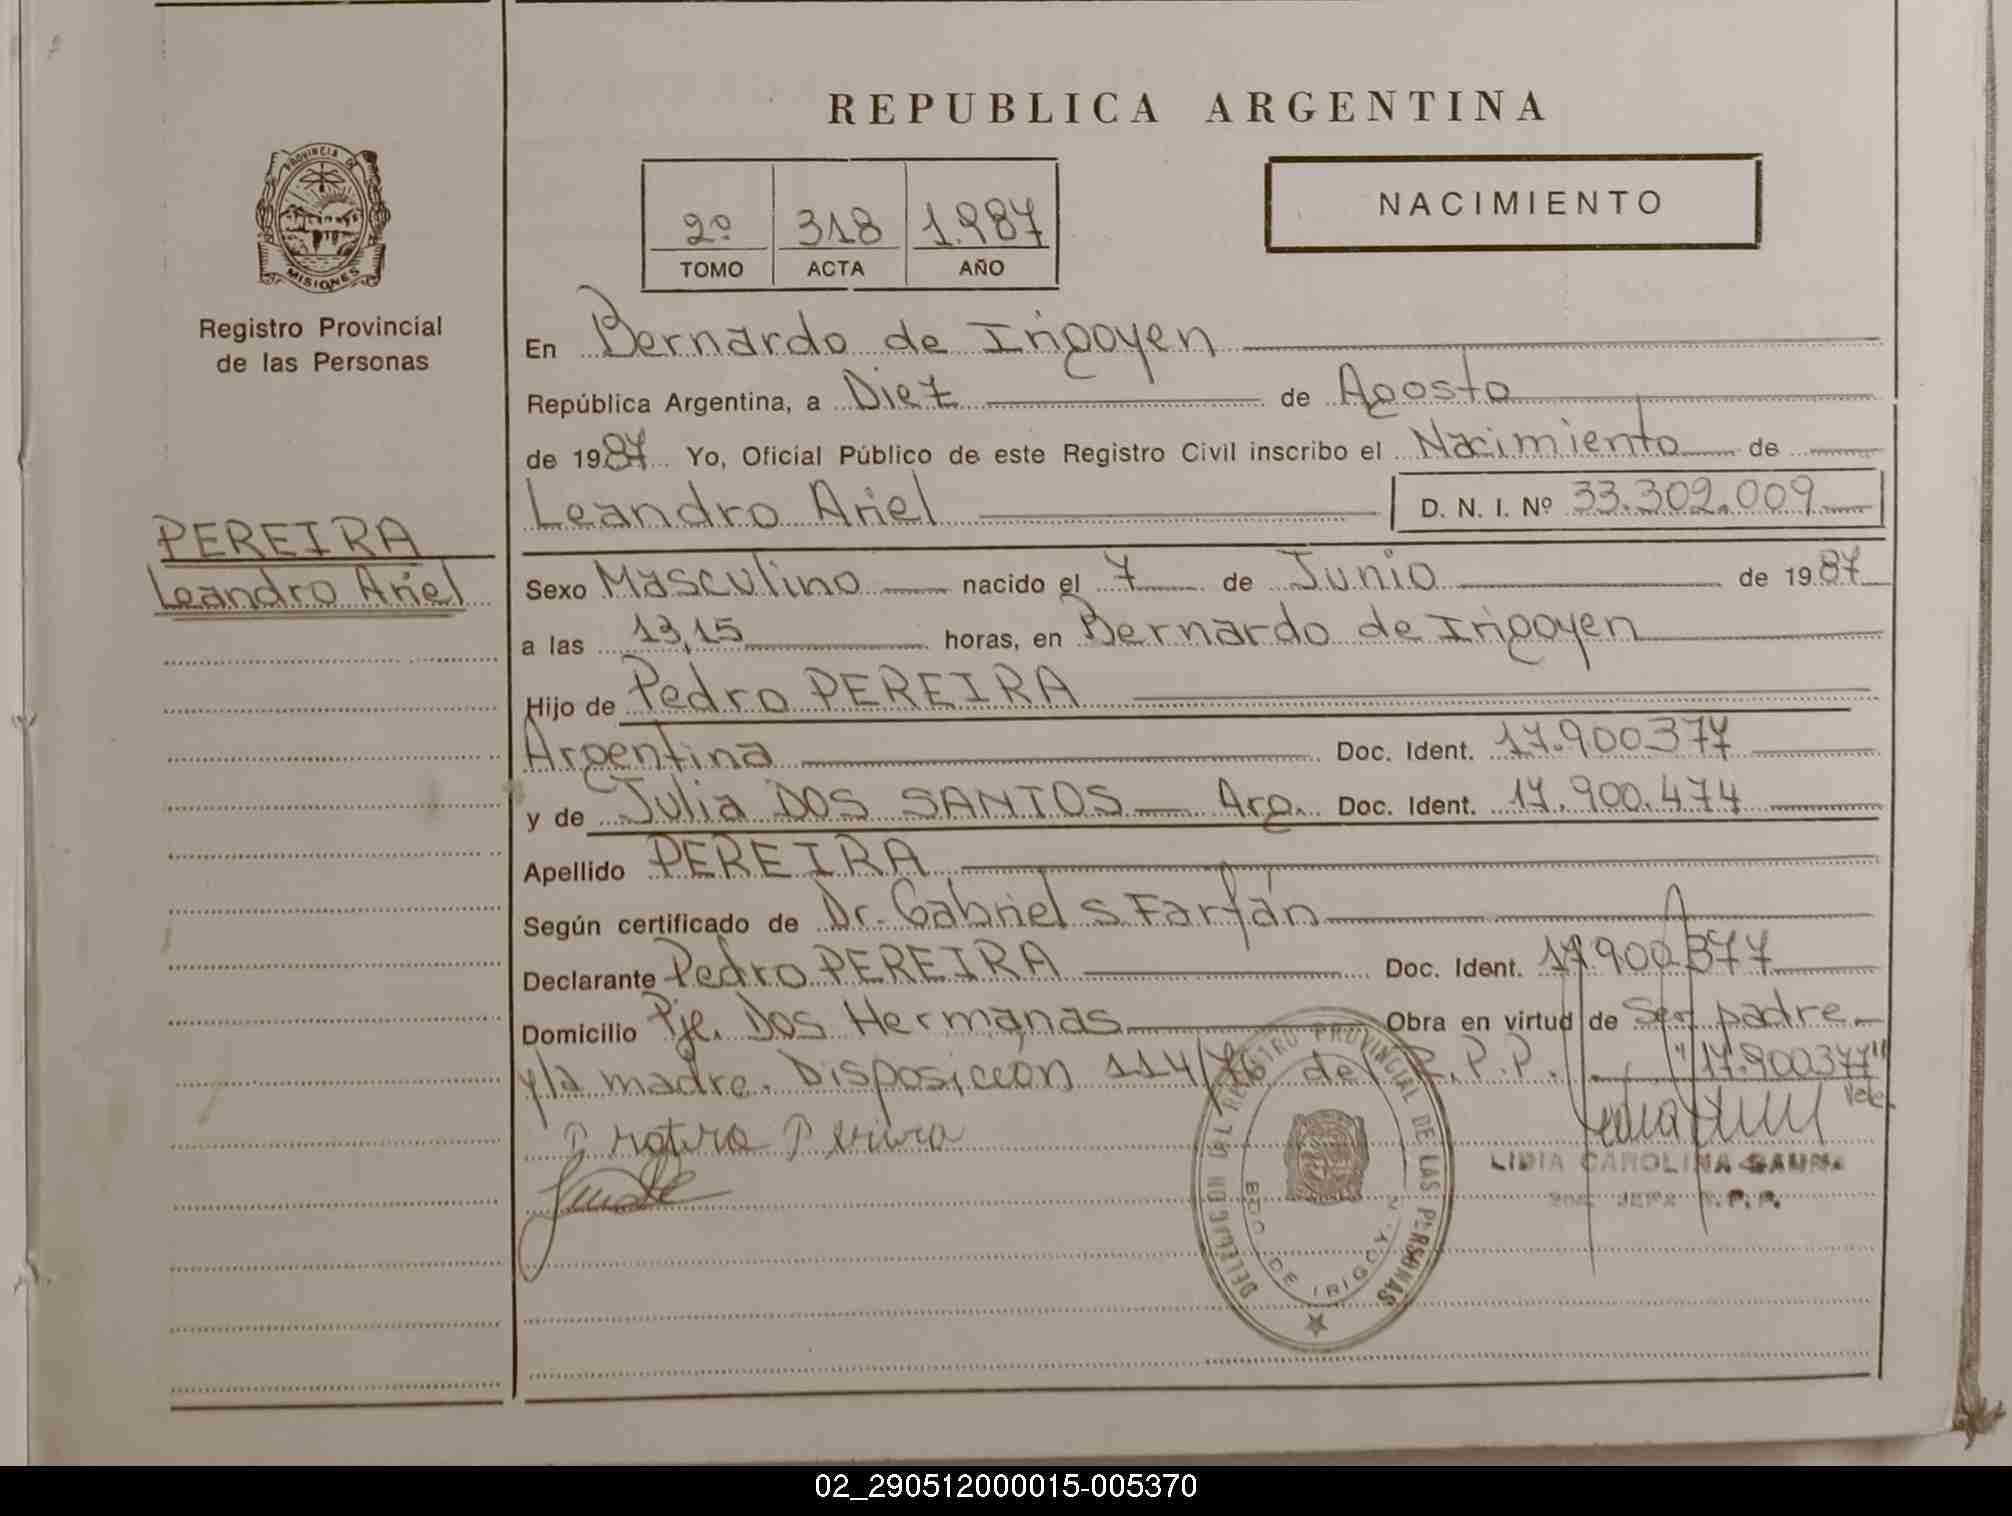 REPUBLICA ARGENTINA
PROVINCIA DE
MISIONES
Registro Provincial
de las Personas
PEREIRA
Leandro Ariel
2º 318 1.987
TOMO ACTA AÑO
NACIMIENTO
En Bernardo de Irigoyen
República Argentina, a Diez de Agosto
de 1987 Yo, Oficial Público de este Registro Civil inscribo el Nacimiento de
Leandro Ariel D. N. I. Nº 33.302.009
Sexo Masculino nacido el 7 de Junio de 1987
a las 13,15 horas, en Bernardo de Irigoyen
Hijo de Pedro PEREIRA
Argentina Doc. Ident. 17.900377
y de Julia DOS SANTOS Arg. Doc. Ident. 17.900.474
Apellido PEREIRA
Según certificado de Dr. Gabriel S. Farfán
Declarante Pedro PEREIRA Doc. Ident. 17.900.377
Domicilio Pje. Dos Hermanas Obra en virtud de Ser padre
y la madre. Disposición 114/76 del R.P.P. "17.900377"
Vale.
Pereira
DELEGACION DEL REGISTRO PROVINCIAL DE LAS PERSONAS
BDO DE IRIGOYEN
LIDIA CAROLINA
JEFA R.P.P.
02_290512000015-005370